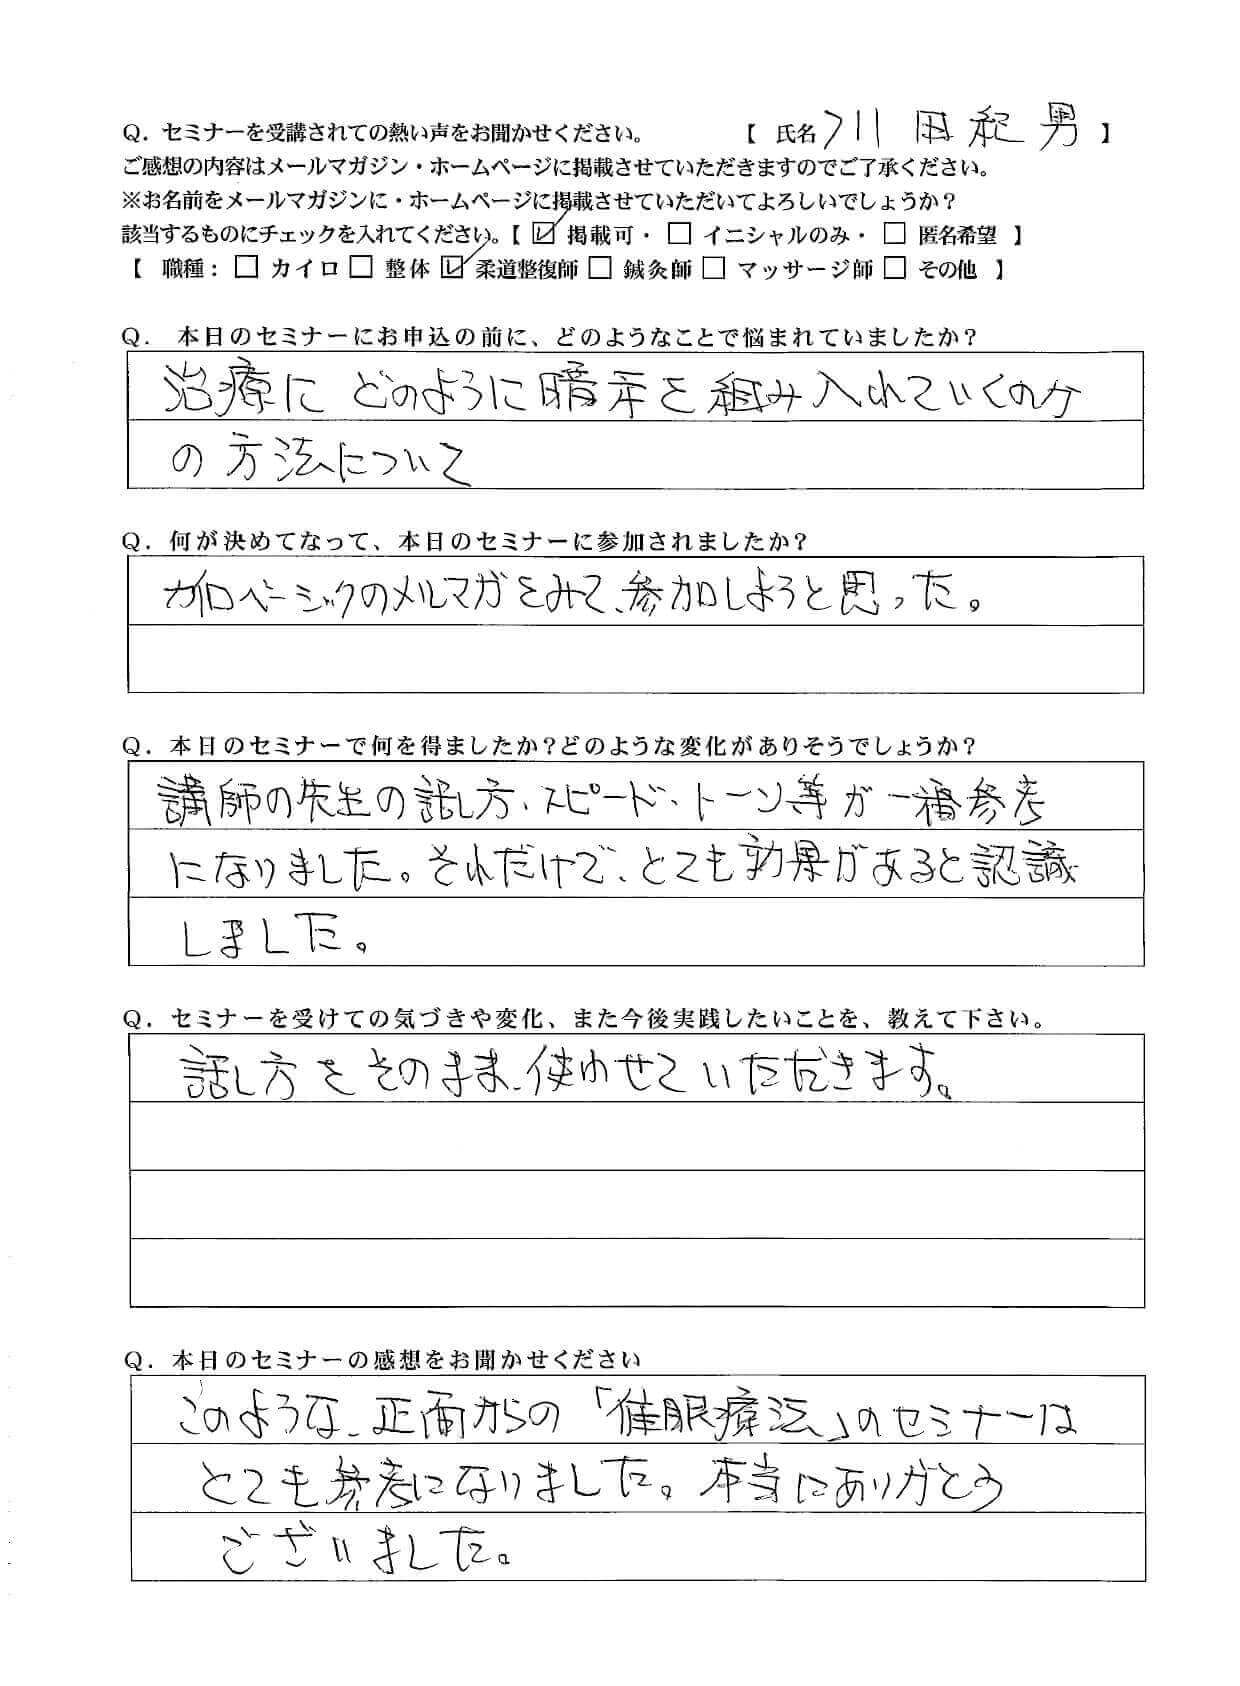 Q. セミナーを受講されての熱い声をお聞かせください。 【 氏名 川田紀男 】
ご感想の内容はメールマガジン・ホームページに掲載させていただきますのでご了承ください。
※お名前をメールマガジンに・ホームページに掲載させていただいてよろしいでしょうか?
該当するものにチェックを入れてください。【 ☑ 掲載可・ □ イニシャルのみ・ □ 匿名希望 】
【 職種: □ カイロ □ 整体 ☑ 柔道整復師 □ 鍼灸師 □ マッサージ師 □ その他 】
Q. 本日のセミナーにお申込の前に、どのようなことで悩まれていましたか?
治療に どのように暗示を組み入れていくのか
の方法について
Q. 何が決めてなって、本日のセミナーに参加されましたか?
カイロベーシックのメルマガをみて、参加しようと思った。
Q. 本日のセミナーで何を得ましたか?どのような変化がありそうでしょうか?
講師の先生の話し方、スピード、トーン等が一番参考
になりました。それだけで、とても効果があると認識
しました。
Q. セミナーを受けての気づきや変化、また今後実践したいことを、教えて下さい。
話し方をそのまま、使わせていただきます。
Q. 本日のセミナーの感想をお聞かせください
このような、正面からの「催眠療法」のセミナーは
とても参考になりました。本当にありがとう
ございました。